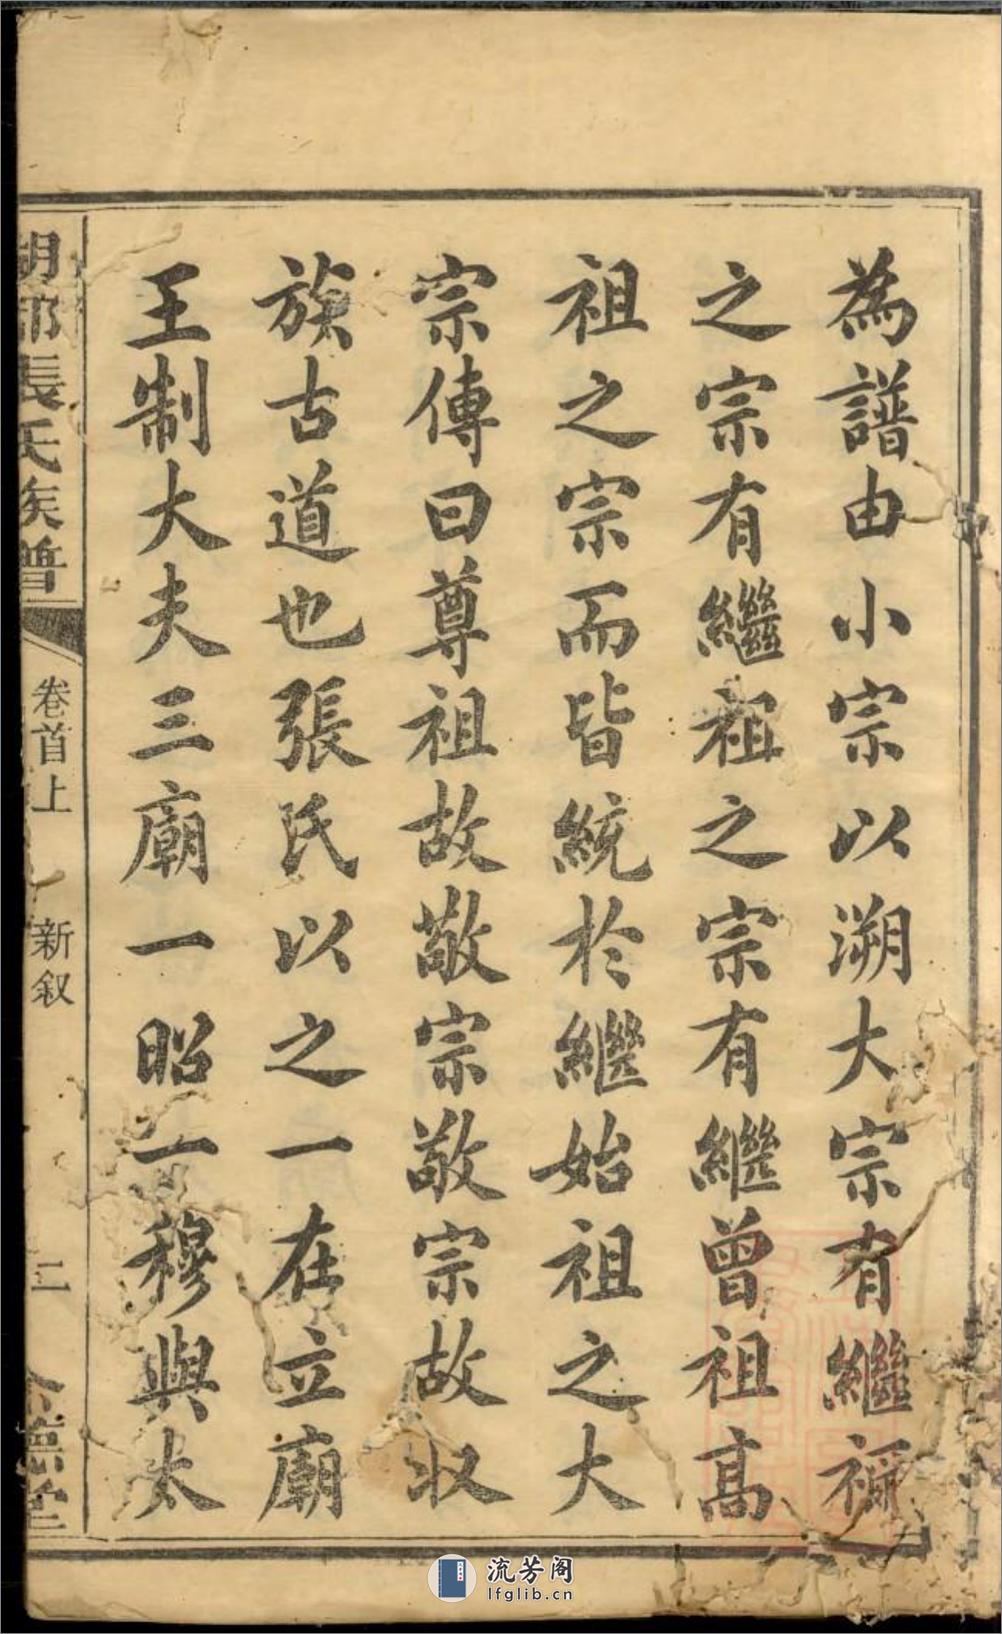 為譜由小宗以溯大宗有繼禰
之宗有繼祖之宗有繼曾祖高
祖之宗而皆統於繼始祖之大
宗傳曰尊祖故敬宗敬宗故収
族古道也張氏以之一在立廟
王制大夫三廟一昭一穆與太
胡郡張氏族譜
卷首上
新叙
二
德堂
流芳阁
lfglib.cn